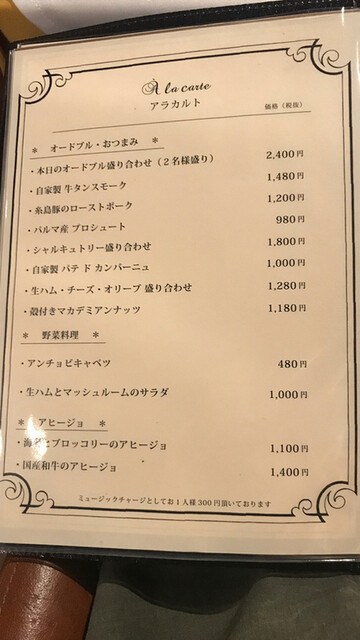 À la carte
アラカルト
価格（税抜）
＊ オードブル・おつまみ ＊
・本日のオードブル盛り合わせ（２名様盛り） 2,400円
・自家製 牛タンスモーク 1,480円
・糸島豚のローストポーク 1,200円
・パルマ産 プロシュート 980円
・シャルキュトリー盛り合わせ 1,800円
・自家製 パテ ド カンパーニュ 1,000円
・生ハム・チーズ・オリーブ 盛り合わせ 1,280円
・殻付きマカデミアンナッツ 1,180円
＊ 野菜料理 ＊
・アンチョビキャベツ 480円
・生ハムとマッシュルームのサラダ 1,000円
＊ アヒージョ ＊
・海老とブロッコリーのアヒージョ 1,100円
・国産和牛のアヒージョ 1,400円
ミュージックチャージとしてお１人様300円頂いております